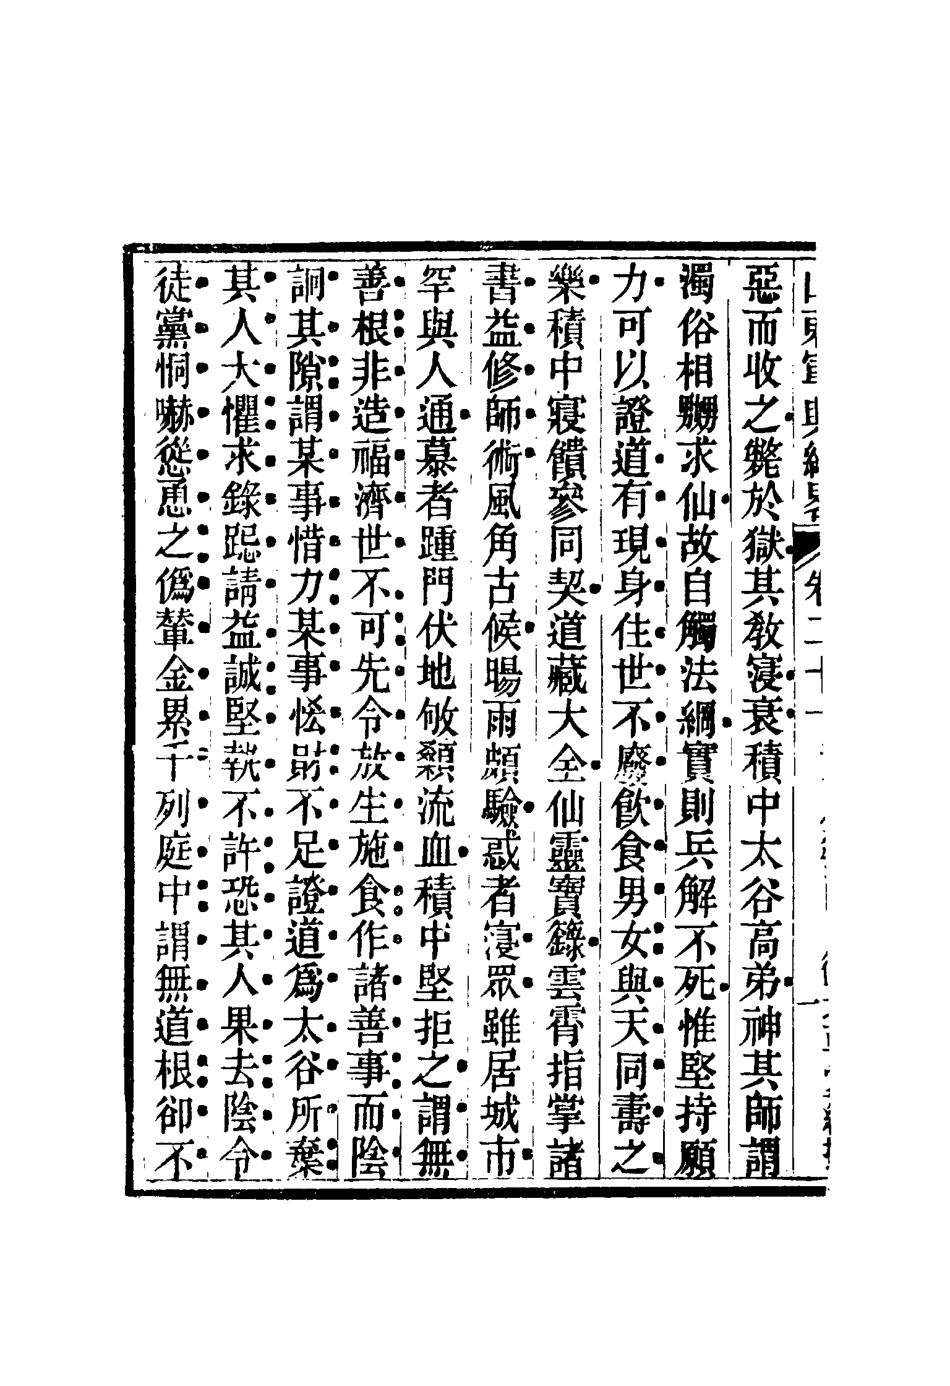 惡而收之斃於獄其教寖衰積中太谷高弟神其師謂
濁俗相嬲求仙故自觸法網實則兵解不死惟堅持願
力可以證道有現身住世不廢飲食男女與天同壽之
樂積中寢饋參同契道藏大全仙靈寶籙雲霄指掌諸
書益修師術風角古候暘雨頗驗惑者寖眾雖居城市
罕與人通慕者踵門伏地攽顙流血積中堅拒之謂無
善根非造福濟世不可先令放生施食作諸善事而陰
詗其隙謂某事惜力某事恡財不足證道為太谷所棄
其人大懼求錄跽請益誠堅執不許恐其人果去陰令
徒黨恫嚇慫恿之僞輦金累千列庭中謂無道根卻不